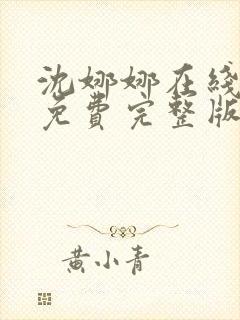 沈娜娜在线
免費完整版
黄小青